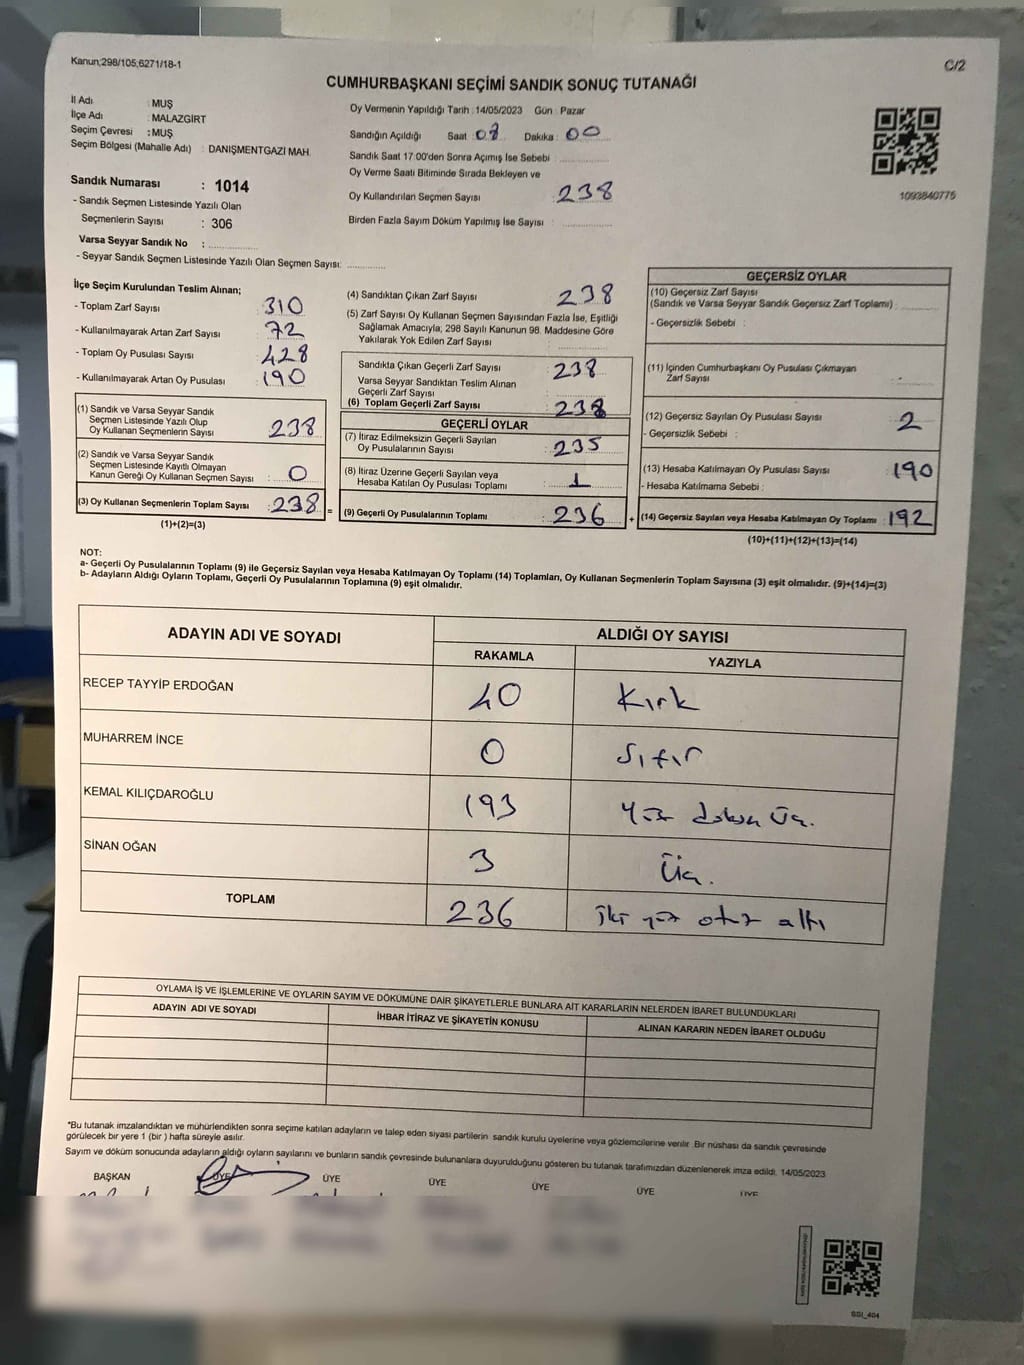 Kanun;298/105;6271/18-1
C/2
CUMHURBAŞKANI SEÇİMİ SANDIK SONUÇ TUTANAĞI
İl Adı : MUŞ
İlçe Adı : MALAZGİRT
Seçim Çevresi : MUŞ
Seçim Bölgesi (Mahalle Adı) : DANIŞMENTGAZİ MAH.
Sandık Numarası : 1014
- Sandık Seçmen Listesinde Yazılı Olan
Seçmenlerin Sayısı : 306
Varsa Seyyar Sandık No :
- Seyyar Sandık Seçmen Listesinde Yazılı Olan Seçmen Sayısı:
Oy Vermenin Yapıldığı Tarih : 14/05/2023 Gün : Pazar
Sandığın Açıldığı Saat : 08 Dakika : 00
Sandık Saat 17:00'den Sonra Açımış İse Sebebi
Oy Verme Saati Bitiminde Sırada Bekleyen ve
Oy Kullandırılan Seçmen Sayısı : 238
Birden Fazla Sayım Döküm Yapılmış İse Sayısı :
1093840775
İlçe Seçim Kurulundan Teslim Alınan;
- Toplam Zarf Sayısı : 310
- Kullanılmayarak Artan Zarf Sayısı : 72
- Toplam Oy Pusulası Sayısı : 428
- Kullanılmayarak Artan Oy Pusulası : 190
(1) Sandık ve Varsa Seyyar Sandık
Seçmen Listesinde Yazılı Olup
Oy Kullanan Seçmenlerin Sayısı : 238
(2) Sandık ve Varsa Seyyar Sandık
Seçmen Listesinde Kayıtlı Olmayan
Kanun Gereği Oy Kullanan Seçmen Sayısı : 0
(3) Oy Kullanan Seçmenlerin Toplam Sayısı : 238 =
(1)+(2)=(3)
(4) Sandıktan Çıkan Zarf Sayısı : 238
(5) Zarf Sayısı Oy Kullanan Seçmen Sayısından Fazla İse, Eşitliği
Sağlamak Amacıyla, 298 Sayılı Kanunun 98. Maddesine Göre
Yakılarak Yok Edilen Zarf Sayısı
Sandıkta Çıkan Geçerli Zarf Sayısı : 238
Varsa Seyyar Sandıktan Teslim Alınan
Geçerli Zarf Sayısı :
(6) Toplam Geçerli Zarf Sayısı : 238
GEÇERLİ OYLAR
(7) İtiraz Edilmeksizin Geçerli Sayılan
Oy Pusulalarının Sayısı : 235
(8) İtiraz Üzerine Geçerli Sayılan veya
Hesaba Katılan Oy Pusulası Toplamı : 1
(9) Geçerli Oy Pusulalarının Toplamı : 236 +
GEÇERSİZ OYLAR
(10) Geçersiz Zarf Sayısı
(Sandık ve Varsa Seyyar Sandık Geçersiz Zarf Toplamı) :
- Geçersizlik Sebebi :
(11) İçinden Cumhurbaşkanı Oy Pusulası Çıkmayan
Zarf Sayısı : -
(12) Geçersiz Sayılan Oy Pusulası Sayısı : 2
- Geçersizlik Sebebi :
(13) Hesaba Katılmayan Oy Pusulası Sayısı : 190
- Hesaba Katılmama Sebebi :
(14) Geçersiz Sayılan veya Hesaba Katılmayan Oy Toplamı : 192
(10)+(11)+(12)+(13)=(14)
NOT:
a- Geçerli Oy Pusulalarının Toplamı (9) ile Geçersiz Sayılan veya Hesaba Katılmayan Oy Toplamı (14) Toplamları, Oy Kullanan Seçmenlerin Toplam Sayısına (3) eşit olmalıdır. (9)+(14)=(3)
b- Adayların Aldığı Oyların Toplamı, Geçerli Oy Pusulalarının Toplamına (9) eşit olmalıdır.
ADAYIN ADI VE SOYADI ALDIĞI OY SAYISI
RAKAMLA YAZIYLA
RECEP TAYYİP ERDOĞAN 40 Kırk
MUHARREM İNCE 0 Sıfır
KEMAL KILIÇDAROĞLU 193 yüz doksan üç.
SİNAN OĞAN 3 Üç.
TOPLAM 236 iki yüz otuz altı
OYLAMA İŞ VE İŞLEMLERİNE VE OYLARIN SAYIM VE DÖKÜMÜNE DAİR ŞİKAYETLERLE BUNLARA AİT KARARLARIN NELERDEN İBARET BULUNDUKLARI
ADAYIN ADI VE SOYADI İHBAR İTİRAZ VE ŞİKAYETİN KONUSU ALINAN KARARIN NEDEN İBARET OLDUĞU
*Bu tutanak imzalandıktan ve mühürlendikten sonra seçime katılan adayların ve talep eden siyasi partilerin sandık kurulu üyelerine veya gözlemcilerine verilir. Bir nüshası da sandık çevresinde
görülecek bir yere 1 (bir ) hafta süreyle asılır.
Sayım ve döküm sonucunda adayların aldığı oyların sayılarını ve bunların sandık çevresinde bulunanlara duyurulduğunu gösteren bu tutanak tarafımızdan düzenlenerek imza edildi. 14/05/2023
BAŞKAN ÜYE ÜYE ÜYE ÜYE ÜYE ÜYE
SSI_404